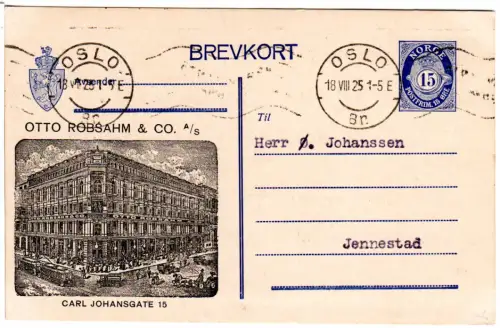 BREVKORT
OSLO
18 VIII 25 1-5 E
Br.
OSLO
18 VIII 25 1-5 E
Br.
NORGE
15
POSTFRIM. 15 ØRE
Avsender:
OTTO ROBSAHM & CO. A/S
CARL JOHANSGATE 15
Til
Herr Ø. Johanssen
Jennestad